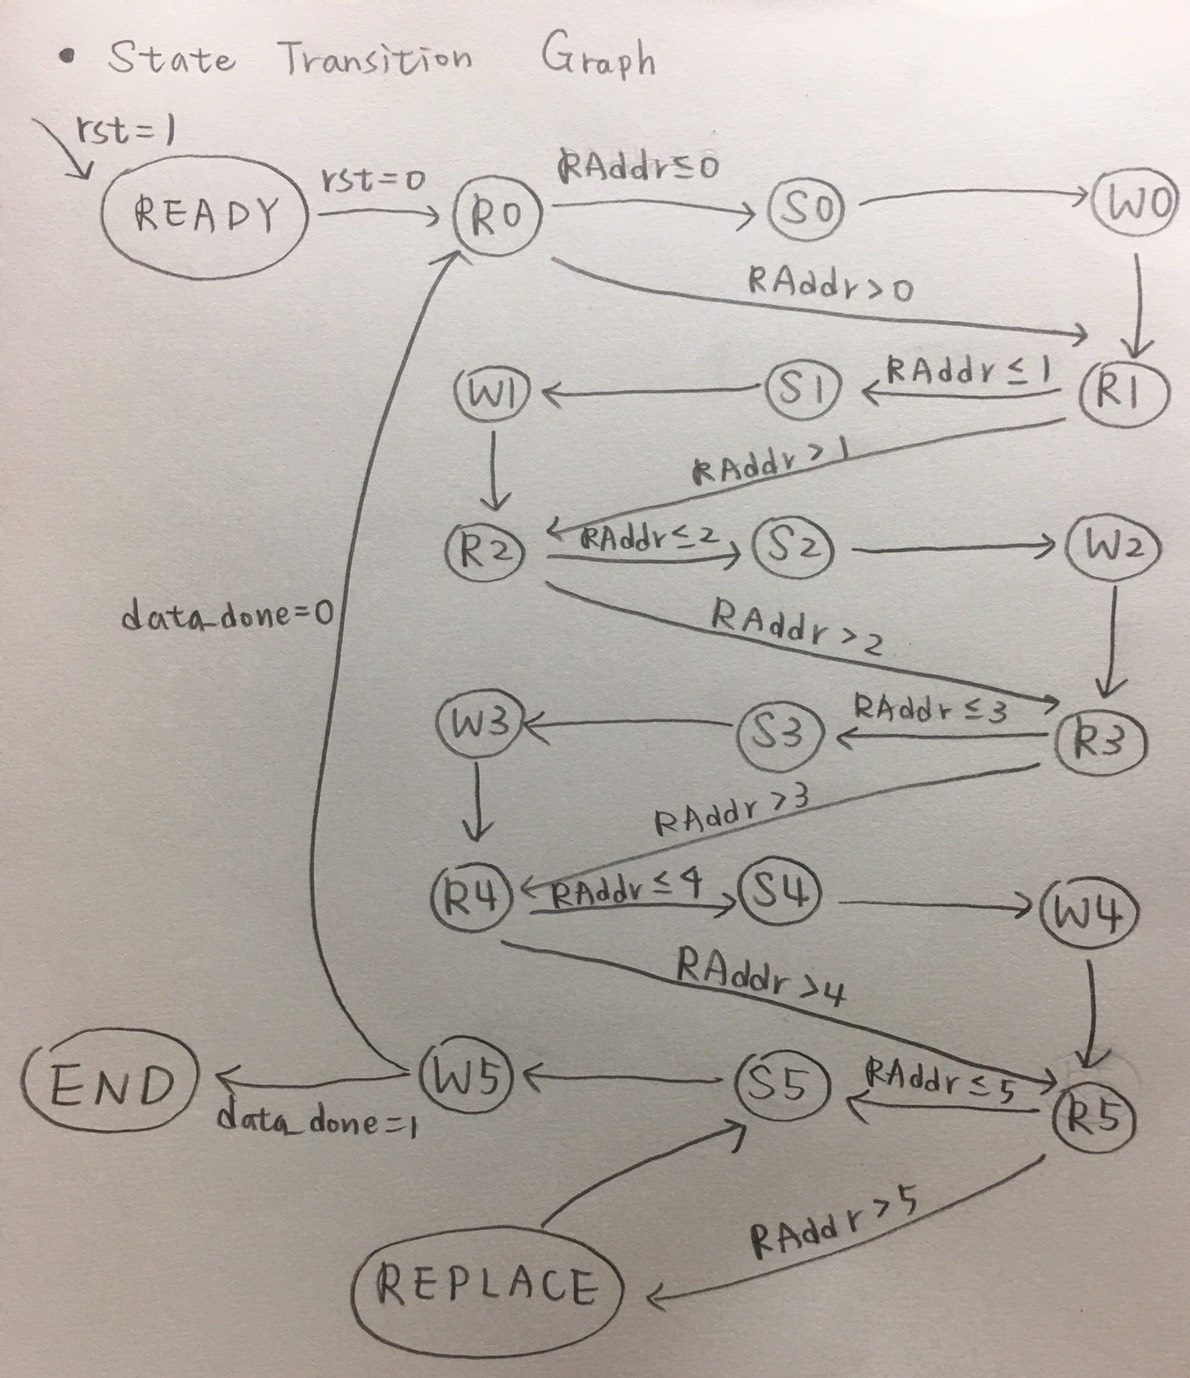 • State Transition Graph
rst=1
READY
rst=0
R0
RAddr≤0
S0
W0
RAddr>0
W1
S1
RAddr≤1
R1
RAddr>1
R2
RAddr≤2
S2
W2
data_done=0
RAddr>2
W3
S3
RAddr≤3
R3
RAddr>3
R4
RAddr≤4
S4
W4
RAddr>4
END
data_done=1
W5
S5
RAddr≤5
R5
RAddr>5
REPLACE